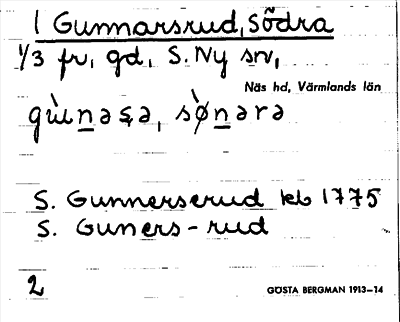 1 Gunnarsrud, Södra
1/3 fr, gd, S. Ny sn,
Näs hd, Värmlands län
gùu̱nəʂə, sø̀n̲ərə
S. Gunnerserud kb 1775
S. Guners-rud
2
GÖSTA BERGMAN 1913–14